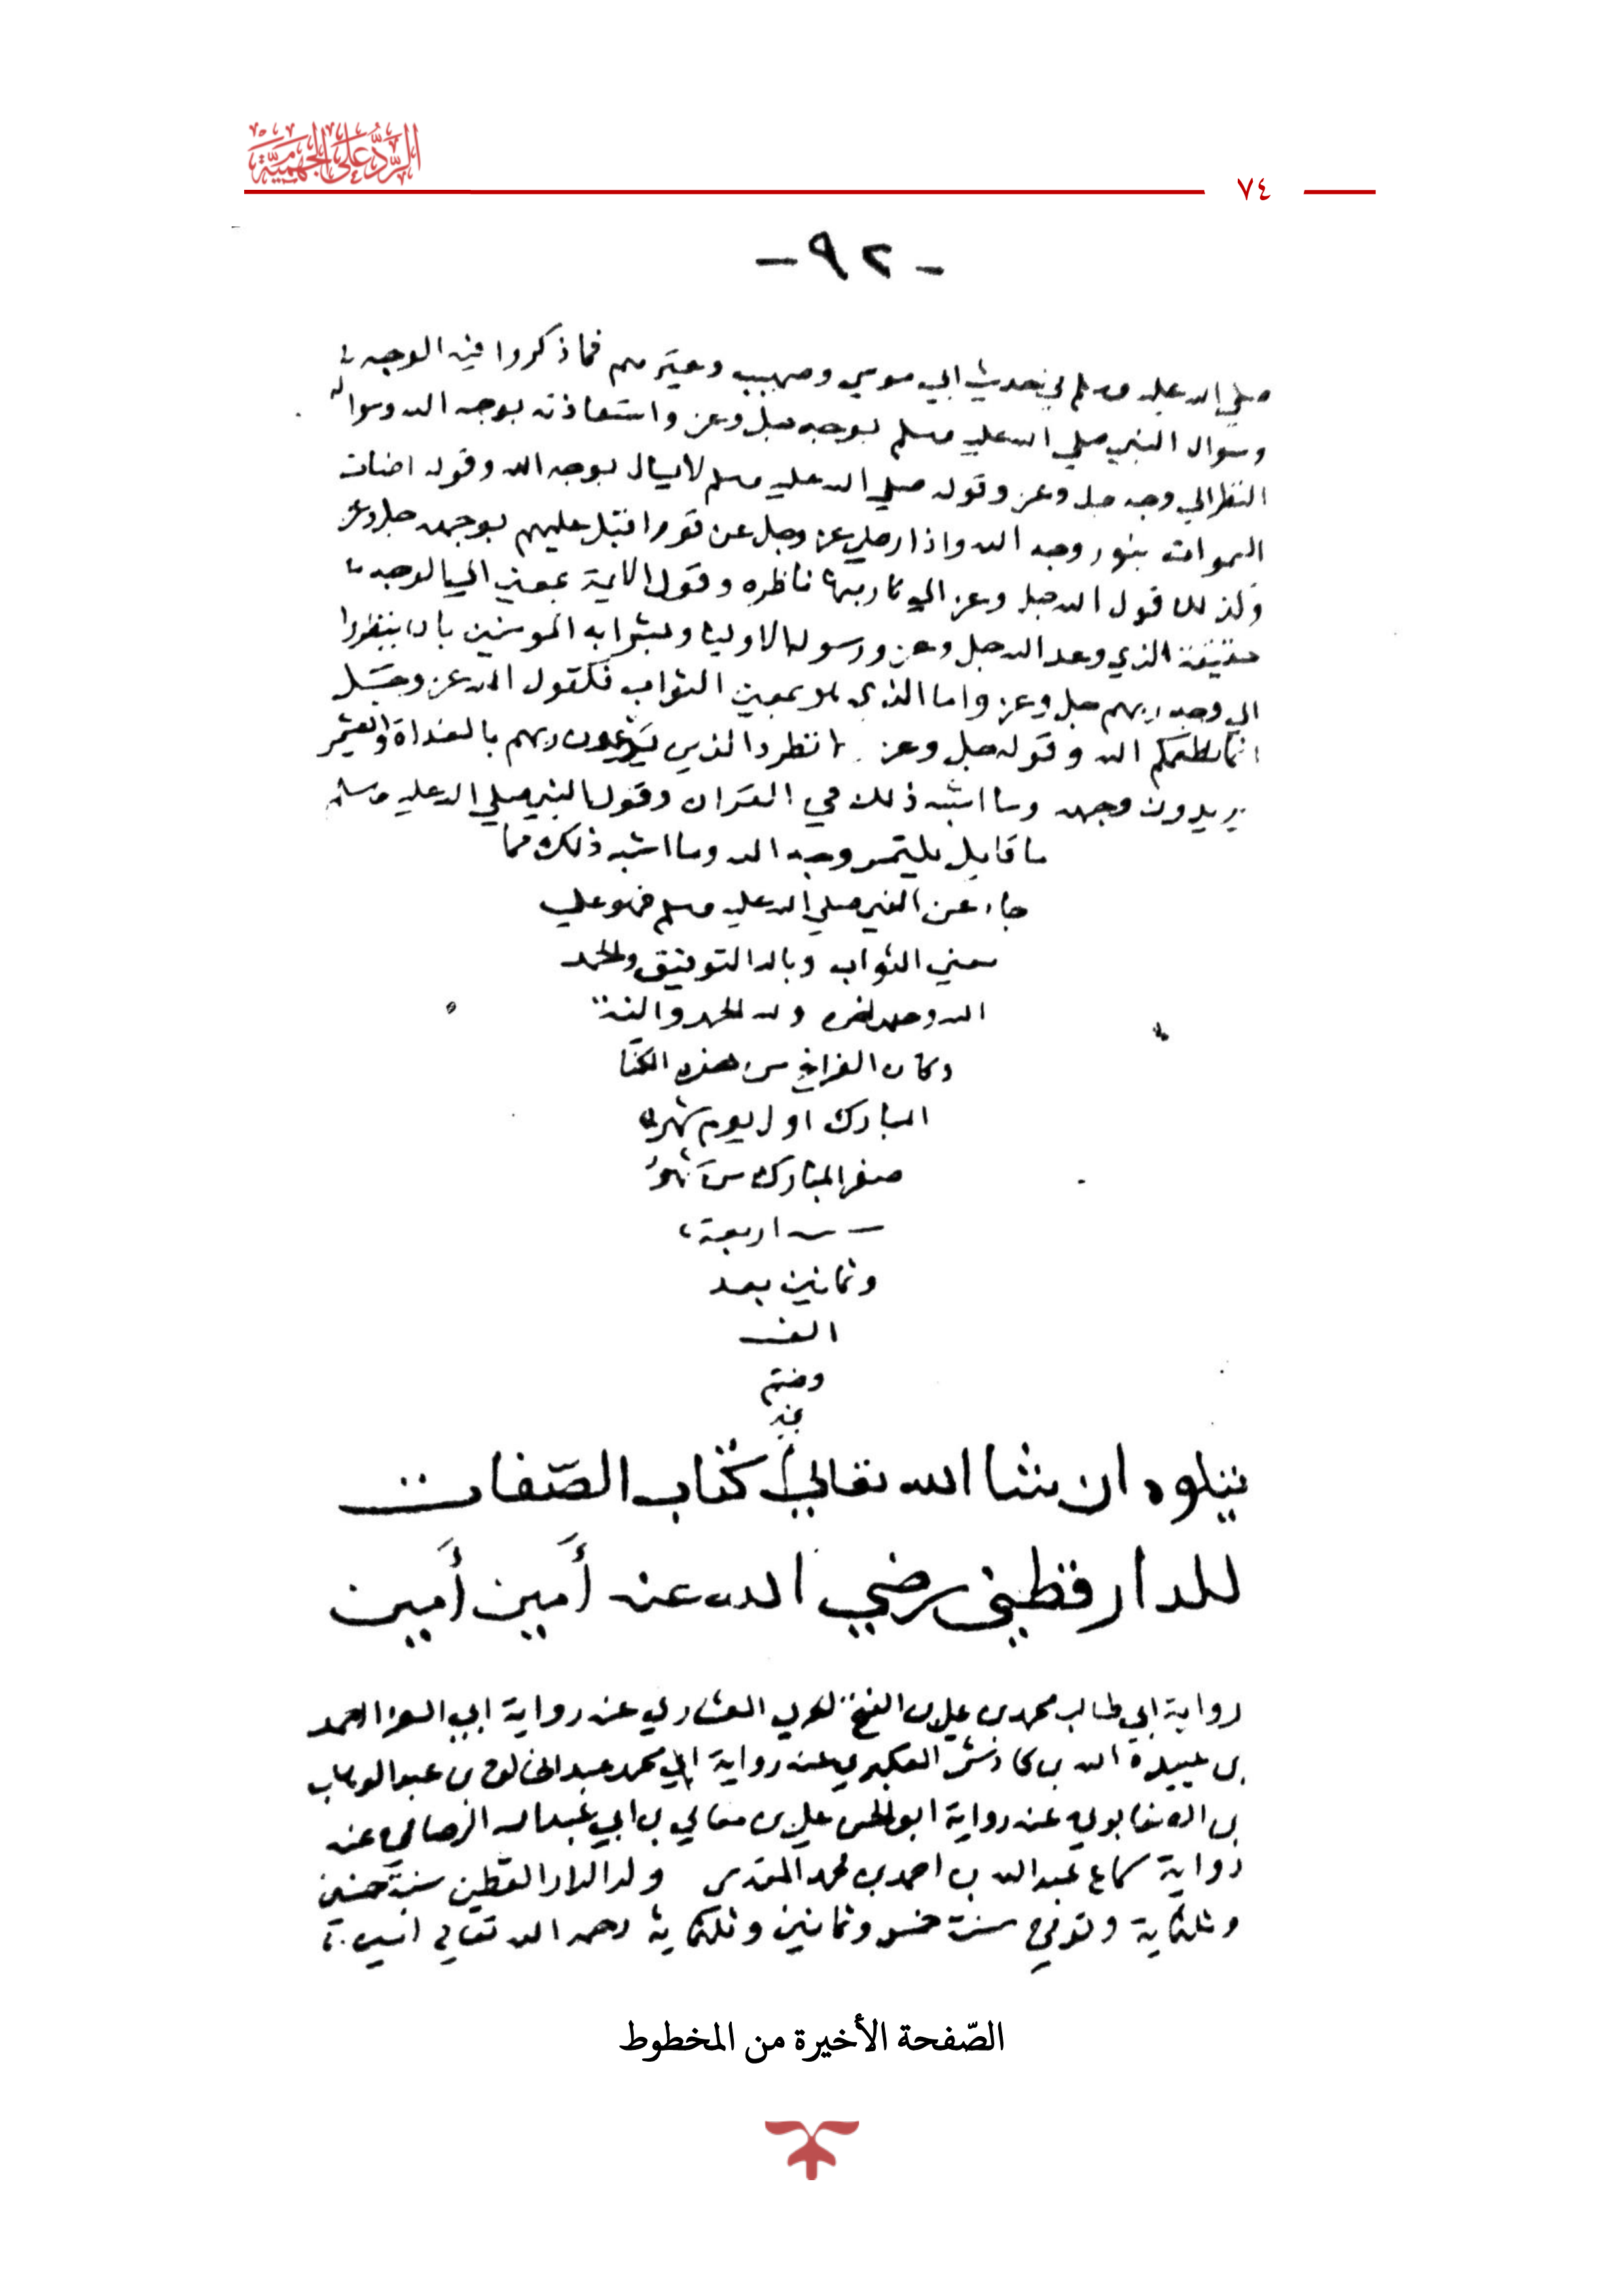 الرَّدُّ عَلَى الجَهْمِيَّة
٧٤
- ٩٢ -
صلي الله عليه وسلم في حديث ابي موسي وصهيب وغيرهم فما ذكروا فيه الوجه
وسوال النبي صلي الله عليه وسلم بوجهه جل وعز واستعاذته بوجه الله وسواله
النظر الي وجهه جل وعز وقوله صلي الله عليه وسلم لا يسال بوجه الله وقوله اضات
السموات بنور وجه الله واذا رضي عز وجل عن قوم اقبل عليهم بوجهه جل وعز
وكذلك قول الله جل وعز الي ربها ناظره وقول الايمة بمعني الي الوجه
حقيقة الذي وعد الله جل وعز ورسوله الاوليا وبشر به المومنين بان ينظروا
الي وجه ربهم جل وعز واما الذي هو بمعني الثواب فكقول الله عز وجل
انما نطعمكم الله وقوله جل وعز لا تطرد الذين يدعون ربهم بالغداة والعشي
يريدون وجهه وما اشبه ذلك في القران وقول النبي صلي الله عليه وسلم
ما قايل يلتمس وجه الله وما اشبه ذلك مما
جاء عن النبي صلي الله عليه وسلم فهو علي
معني الثواب وبالله التوفيق والحمد
الله وحده وله الحمد والمنة
وكان الفراغ من هذه الكتا
المبارك اول يوم شهر
صفر المبارك من شهور
اربعة
وثمانين بعد
الف
وختم
بخير
يتلوه ان شا الله تعالي كتاب الصّفات
للدارقطني رضي الله عنه أمين أمين
رواية ابي طالب محمد بن علي بن الفتح الحربي العشاري عنه رواية ابي العز احمد
بن عبيد الله بن كادش العكبري عنه رواية ابي محمد عبد الخالق بن عبد الوهاب
بن الصابوني عنه رواية ابو الحسن علي بن معالي بن ابي عبد الله الرصافي عنه
رواية سماع عبد الله بن احمد بن محمد المقدسي ولد الدار القطني سنة خمسين
وثلثماية وتوفي سنة خمس وثمانين وثلثماية رحمه الله تعالي امين
الصّفحة الأخيرة من المخطوط